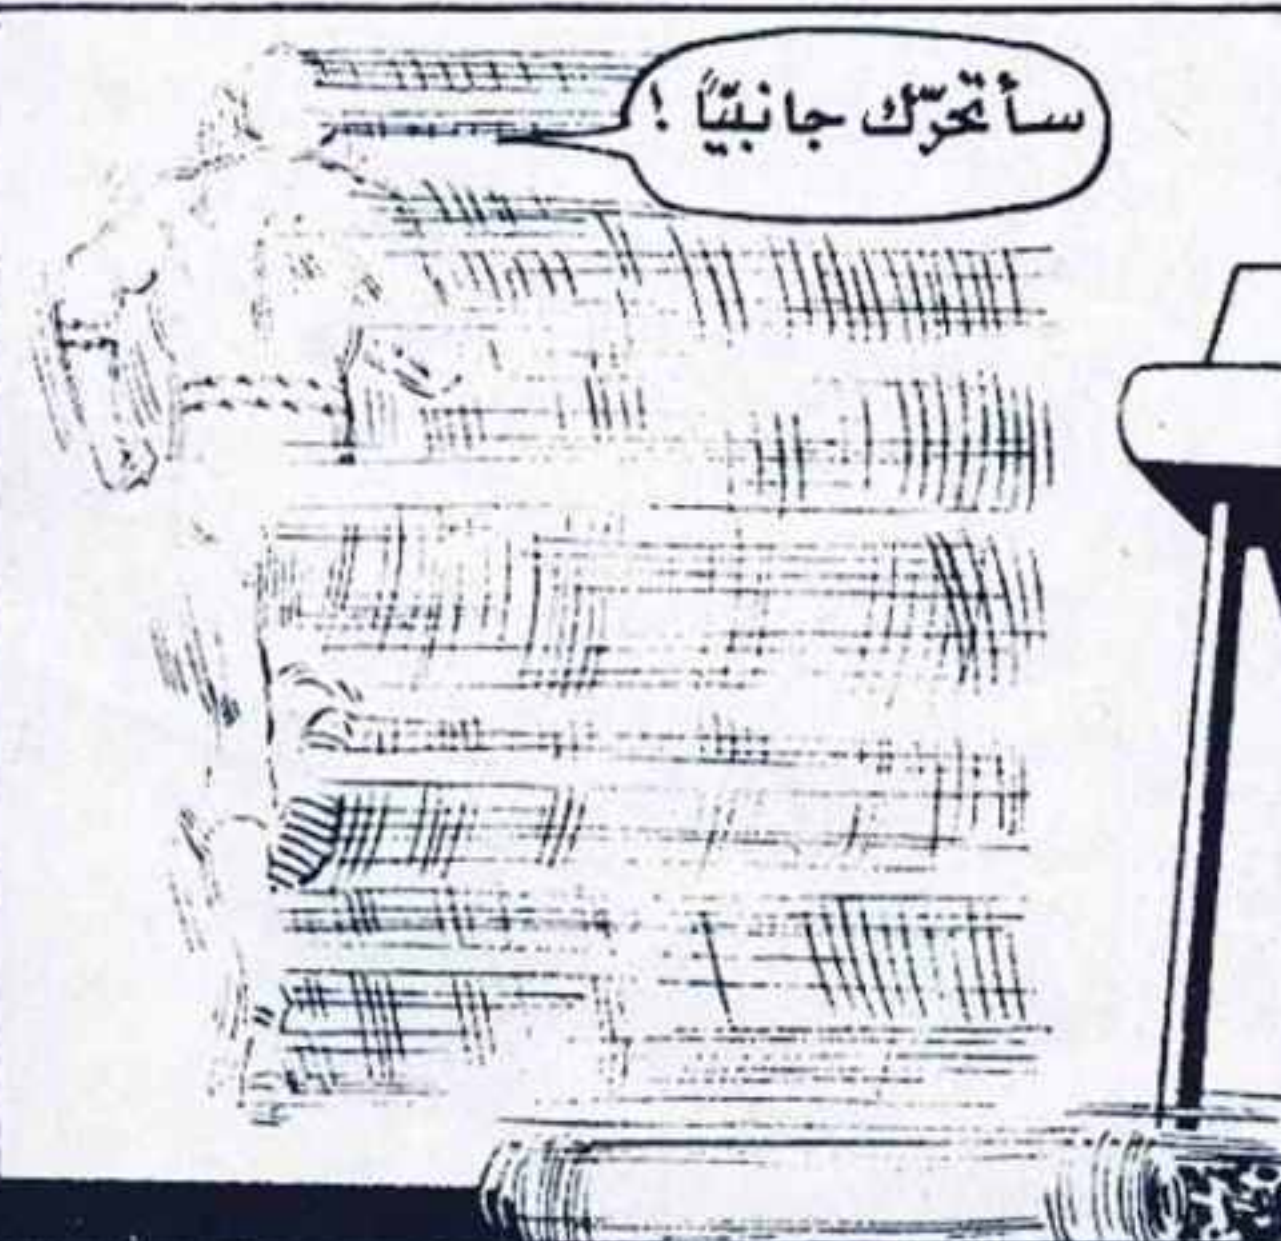 سأتحرّك جانبيّاً !